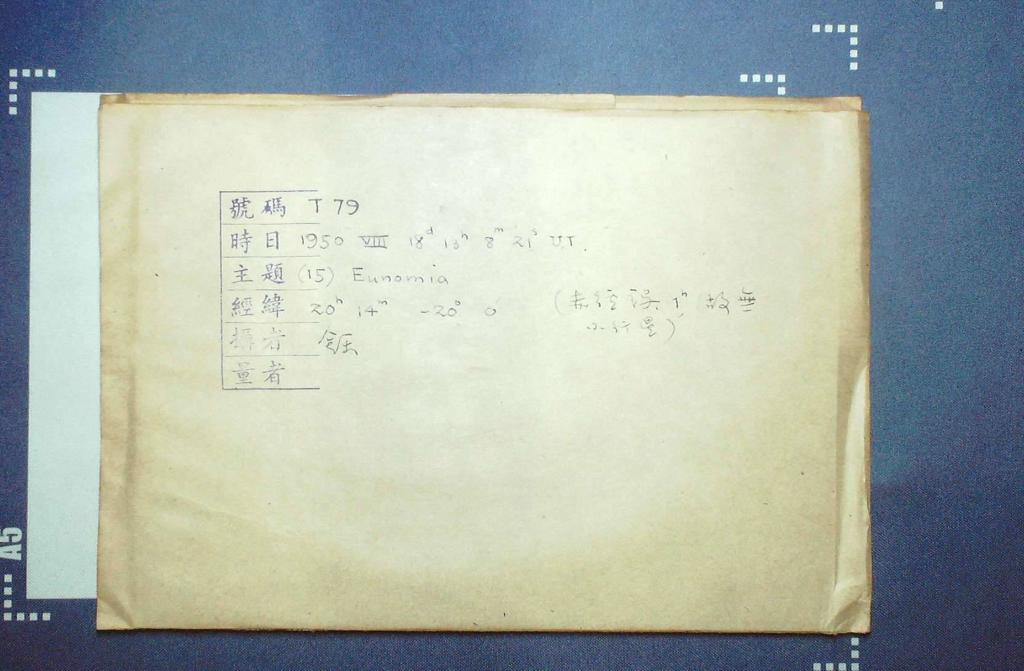 號碼 T 79
時日 1950 VIII 18d 13h 8m 21s U.T.
主題 (15) Eunomia
經緯 20h 14m -20° 0'
(赤經误 1h 故無
小行星)
攝者
量者
A5